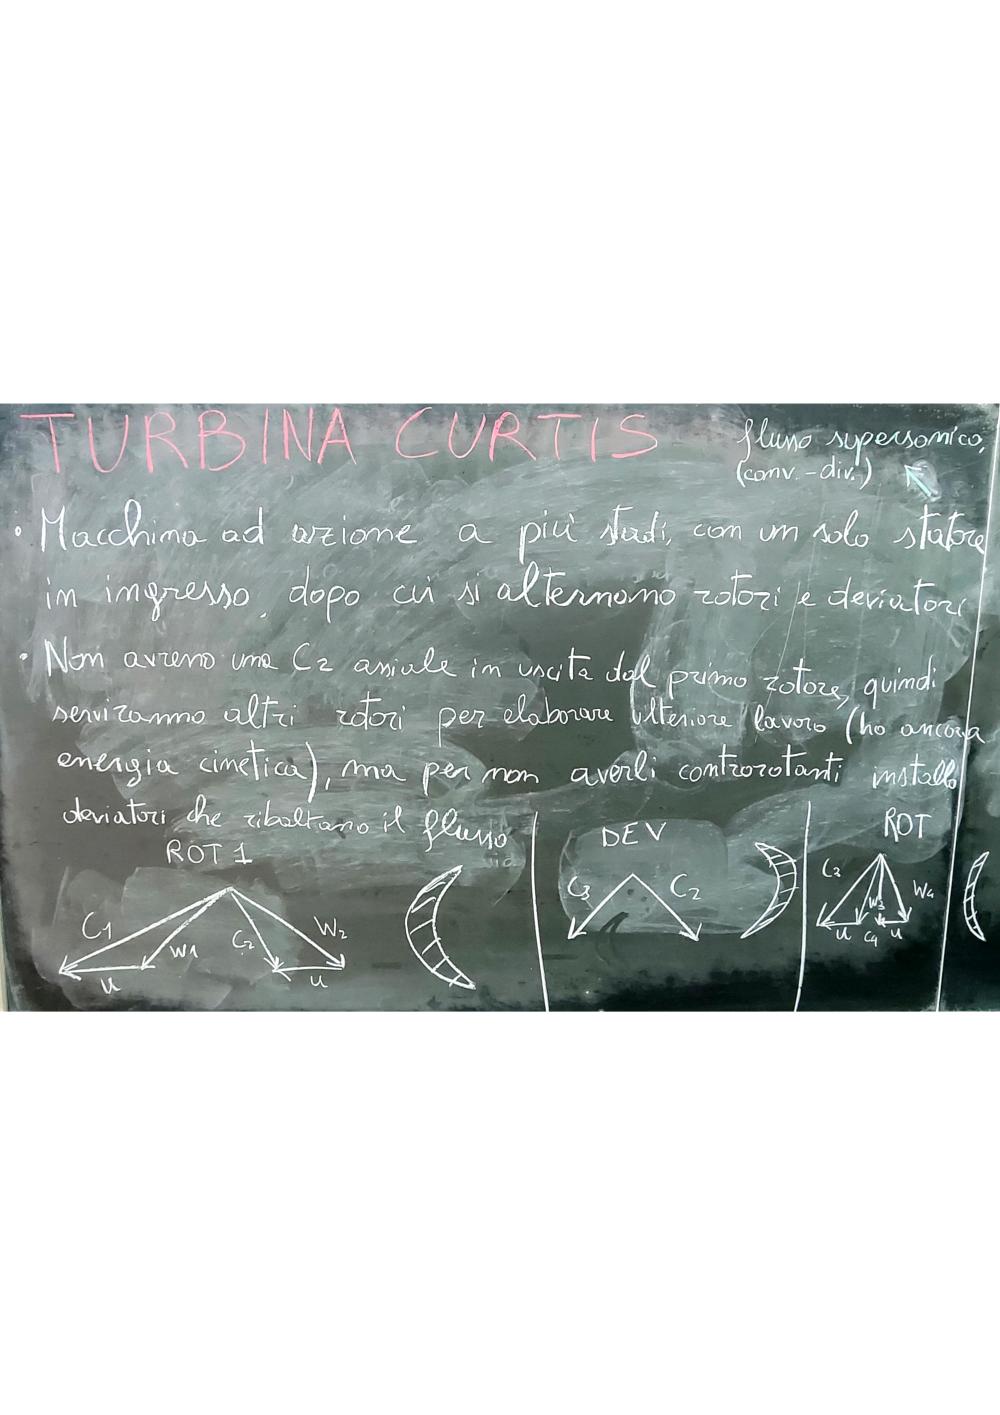 TURBINA CURTIS
flusso supersonico,
(conv.-div.)
• Macchina ad azione a più stadi, con un solo statore
in ingresso, dopo cui si alternano rotori e deviatori
• Non avremo una C2 assiale in uscita dal primo rotore, quindi
serviranno altri rotori per elaborare ulteriore lavoro (ho ancora
energia cinetica), ma per non averli controrotanti installo
deviatori che ribaltano il flusso
ROT 1
DEV
ROT
C1 W1 C2 W2
u u
C3 C2
C3 W3 W4
u C4 u